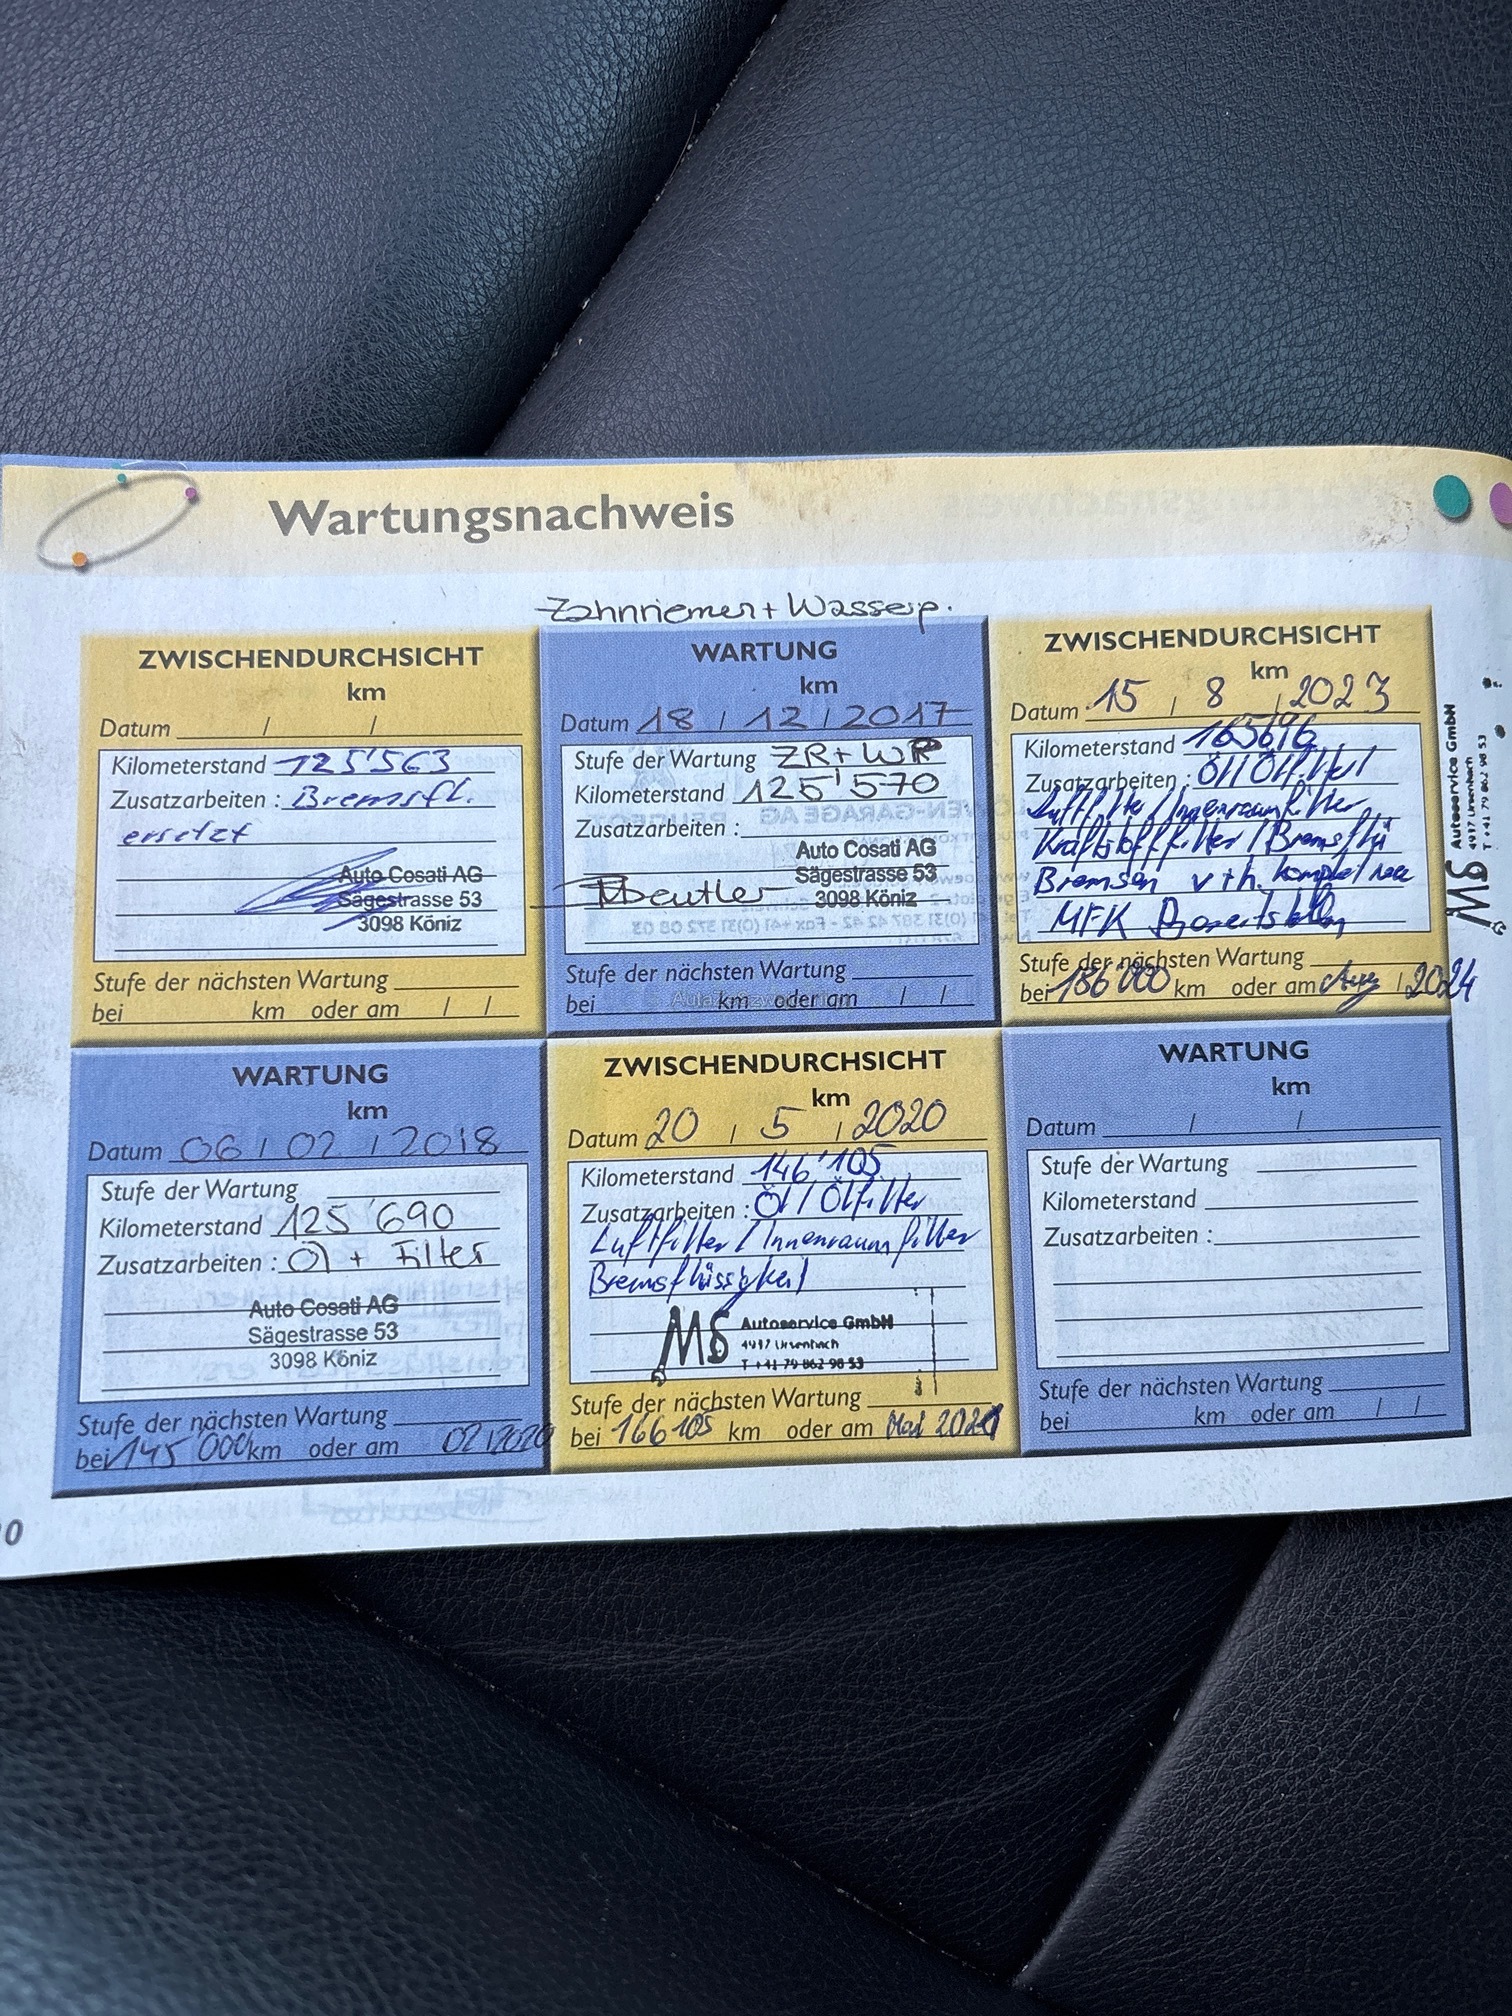 Wartungsnachweis
Zahnriemen + Wasserp.
ZWISCHENDURCHSICHT
km
Datum / /
Kilometerstand 125'563
Zusatzarbeiten : Bremsfl.
ersetzt
Auto Cosati AG
Sägestrasse 53
3098 Köniz
Stufe der nächsten Wartung
bei km oder am / /
WARTUNG
km
Datum 18 / 12 / 2017
Stufe der Wartung ZR + WP
Kilometerstand 125'570
Zusatzarbeiten :
Auto Cosati AG
Sägestrasse 53
3098 Köniz
Stufe der nächsten Wartung
bei km oder am / /
ZWISCHENDURCHSICHT
km
Datum 15 / 8 / 2023
Kilometerstand 165696
Zusatzarbeiten : Öl / Ölfilter
Luftfilter / Innenraumfilter
Kraftstofffilter / Bremsflü
Bremsen v + h. komplet neu
MFK
Stufe der nächsten Wartung
bei 186'000 km oder am Aug / 2024
MS Autoservice GmbH
4937 Ursenbach
T +41 79 862 98 53
WARTUNG
km
Datum 06 / 02 / 2018
Stufe der Wartung
Kilometerstand 125'690
Zusatzarbeiten : Öl + Filter
Auto Cosati AG
Sägestrasse 53
3098 Köniz
Stufe der nächsten Wartung
bei 145'000 km oder am 02/2020
ZWISCHENDURCHSICHT
km
Datum 20 / 5 / 2020
Kilometerstand 146'105
Zusatzarbeiten : Öl / Ölfilter
Luftfilter / Innenraumfilter
Bremsflüssigkeit
MS Autoservice GmbH
4937 Ursenbach
T +41 79 862 98 53
Stufe der nächsten Wartung
bei 166105 km oder am Mai 2021
WARTUNG
km
Datum / /
Stufe der Wartung
Kilometerstand
Zusatzarbeiten :
Stufe der nächsten Wartung
bei km oder am / /